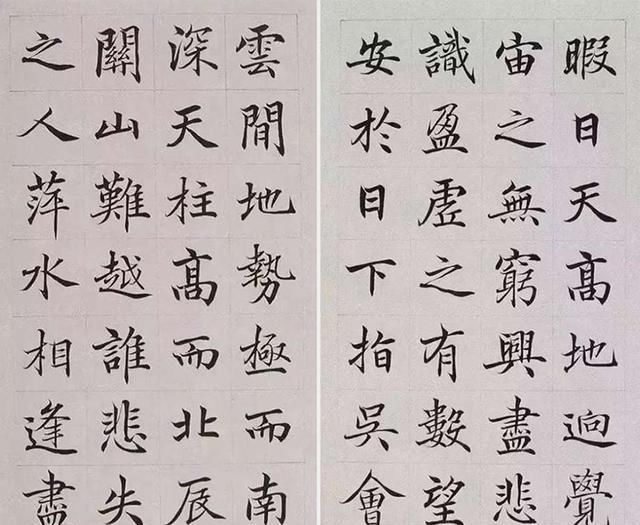 暇日天高地迥覺
宙之無窮興盡悲
識盈虛之有數望
安於日下指吳會
雲間地勢極而南
深天柱高而北辰
關山難越誰悲失
之人萍水相逢盡